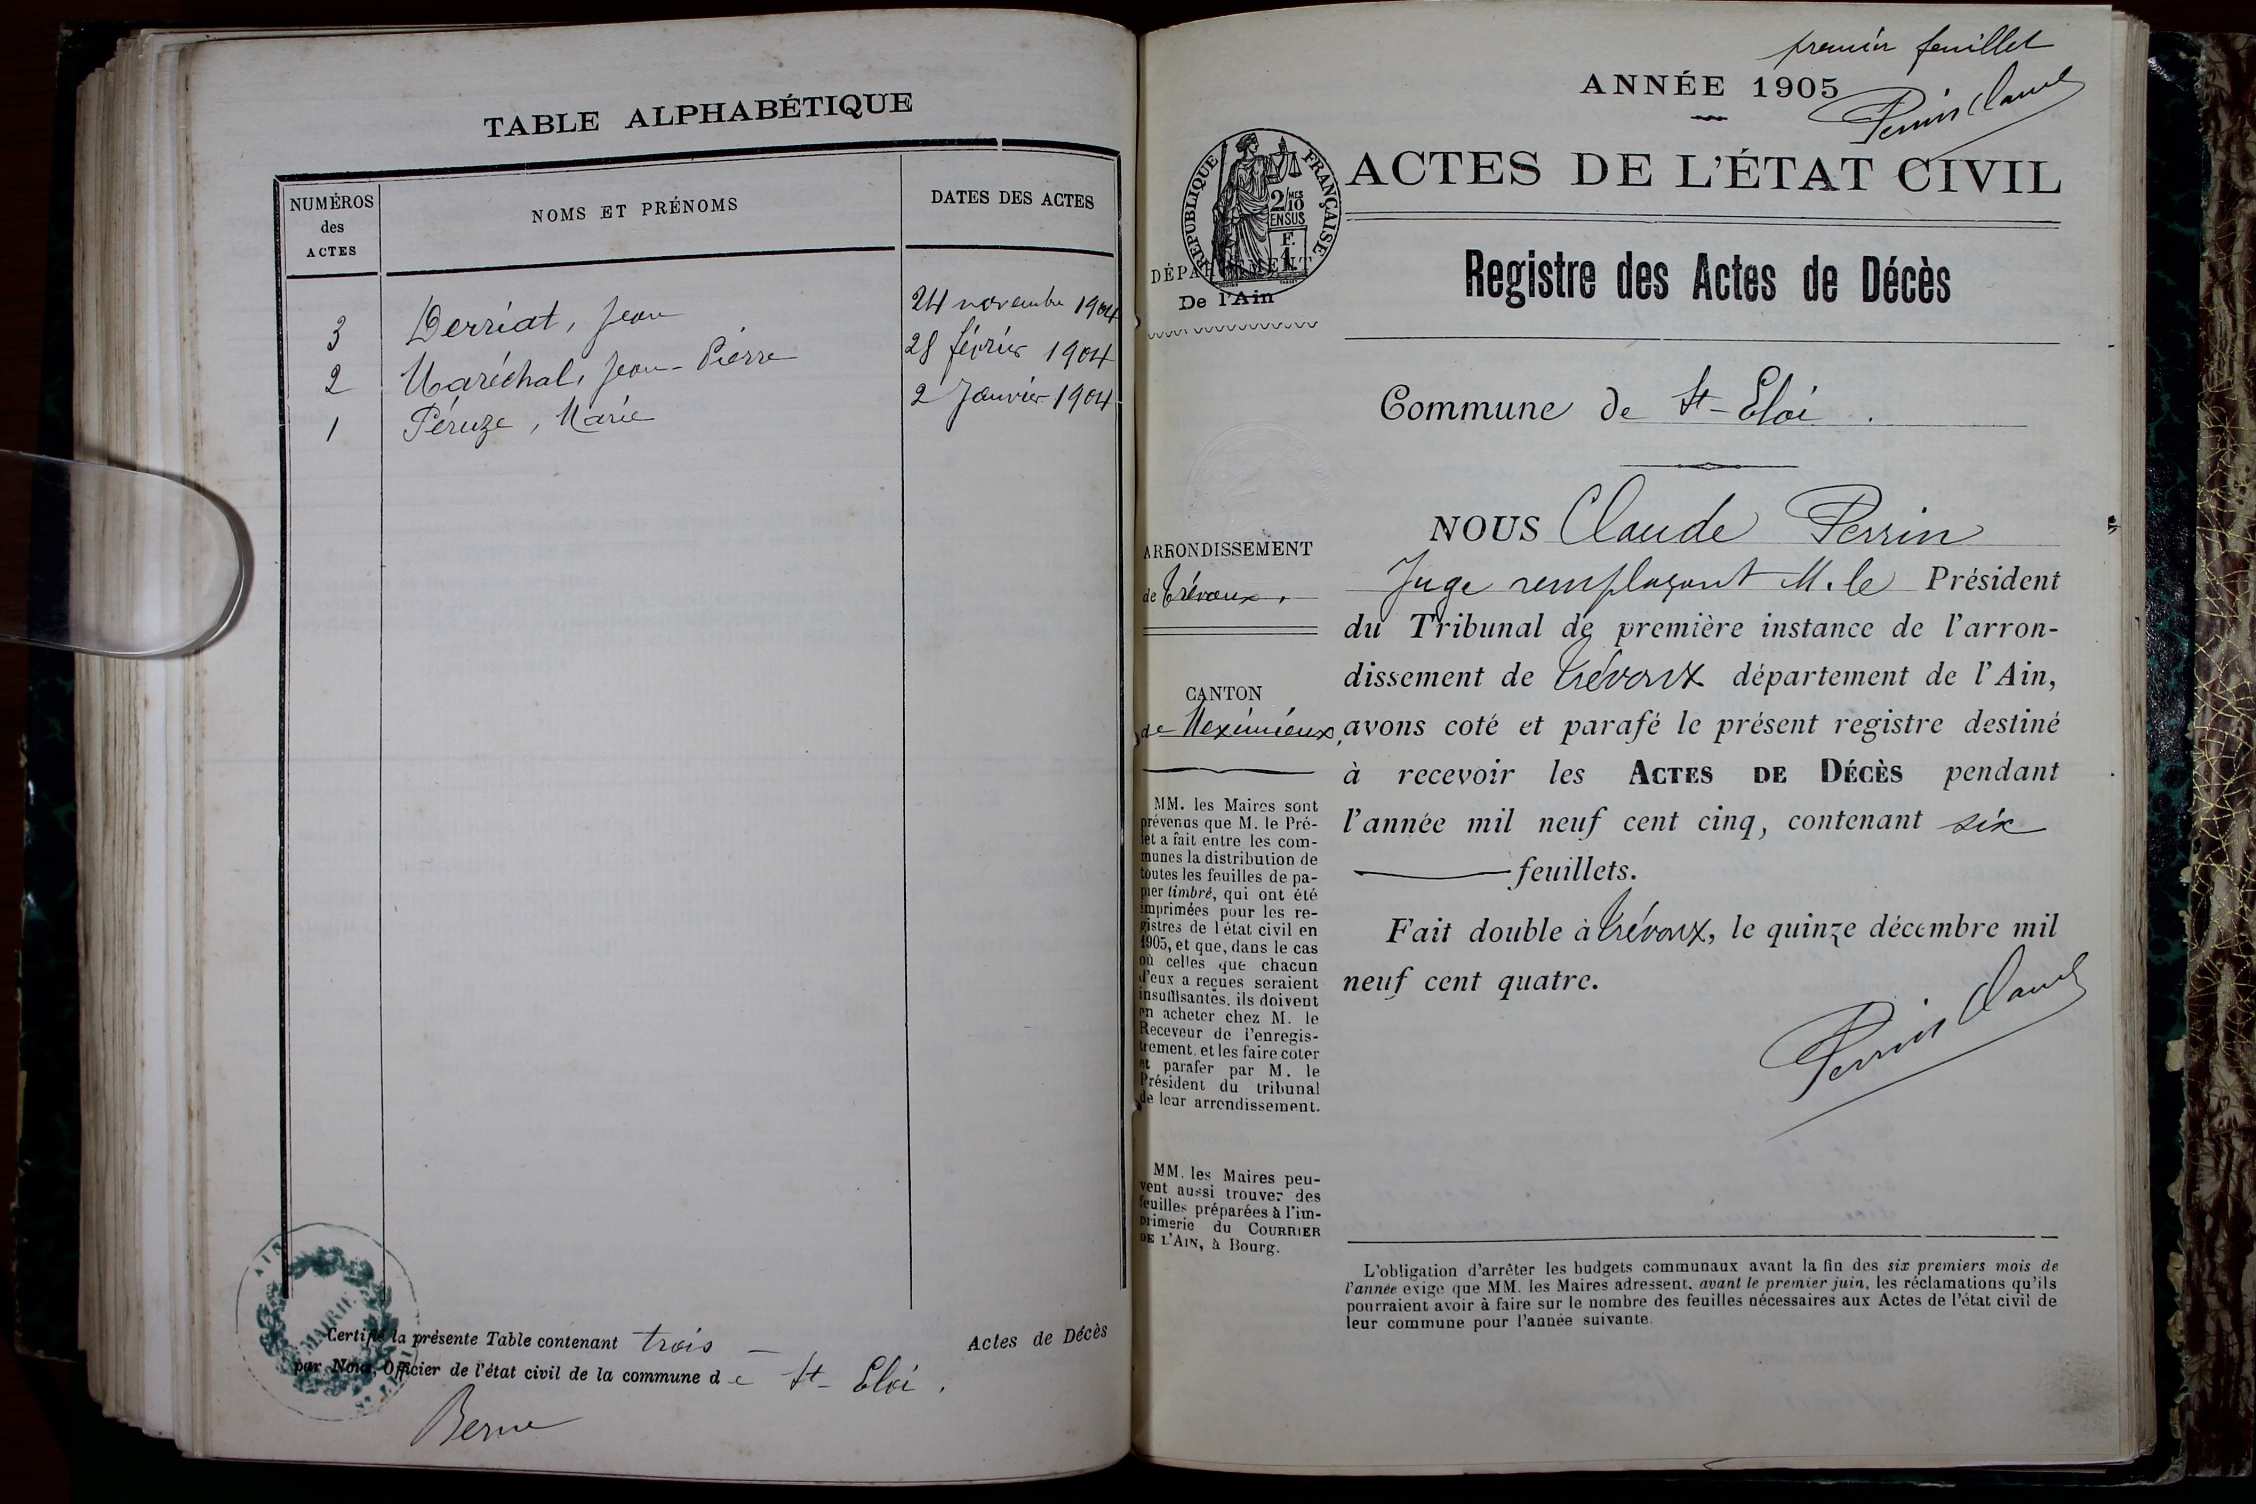 TABLE ALPHABÉTIQUE
NUMÉROS
des
ACTES
NOMS ET PRÉNOMS
DATES DES ACTES
3 Derriat, Jean 24 novembre 1904
2 Maréchal, Jean-Pierre 28 février 1904
1 Péruze, Marie 2 Janvier 1904
MAIRIE
AIN
Certifié la présente Table contenant trois — Actes de Décès
par Nous, Officier de l'état civil de la commune de St-Eloi.
Berne
premier feuillet
ANNÉE 1905
Perrin Claude
ACTES DE L'ÉTAT CIVIL
RÉPUBLIQUE FRANÇAISE
2/10MES
EN SUS
F.
1
DÉPARTEMENT
De l'Ain
Registre des Actes de Décès
Commune de St-Eloi.
ARRONDISSEMENT
de Trévoux.
CANTON
de Meximieux,
MM. les Maires sont
prévenus que M. le Pré-
fet a fait entre les com-
munes la distribution de
toutes les feuilles de pa-
pier timbré, qui ont été
imprimées pour les re-
gistres de l'état civil en
1905, et que, dans le cas
où celles que chacun
d'eux a reçues seraient
insuffisantes, ils doivent
en acheter chez M. le
Receveur de l'enregis-
trement, et les faire coter
et parafer par M. le
Président du tribunal
de leur arrondissement.
MM. les Maires peu-
vent aussi trouver des
feuilles préparées à l'im-
primerie du COURRIER
DE L'AIN, à Bourg.
NOUS Claude Perrin
Juge remplaçant M. le Président
du Tribunal de première instance de l'arron-
dissement de Trévoux département de l'Ain,
avons coté et parafé le présent registre destiné
à recevoir les ACTES DE DÉCÈS pendant
l'année mil neuf cent cinq, contenant six
feuillets.
Fait double à Trévoux, le quinze décembre mil
neuf cent quatre.
Perrin Claude
L'obligation d'arrêter les budgets communaux avant la fin des six premiers mois de
l'année exige que MM. les Maires adressent, avant le premier juin, les réclamations qu'ils
pourraient avoir à faire sur le nombre des feuilles nécessaires aux Actes de l'état civil de
leur commune pour l'année suivante.